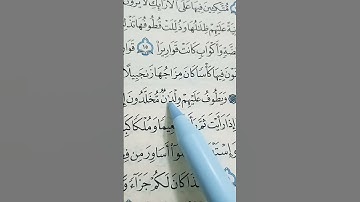 مُتَّكِـِٔينَ فِيهَا عَلَى ٱلْأَرَآئِكِ لَا يَرَوْنَ
ـيَةً عَلَيْهِمْ ظِلَٰلُهَا وَذُلِّلَتْ قُطُوفُهَا
ـضَّةٍ وَأَكْوَابٍ كَانَتْ قَوَارِيرَا۠ ١٥
ـوْنَ فِيهَا كَأْسًا كَانَ مِزَاجُهَا زَنجَبِيلًا
وَيَطُوفُ عَلَيْهِمْ وِلْدَٰنٌ مُّخَلَّدُونَ
إِذَا رَأَيْتَ ثَمَّ ـعِيمًا وَمُلْكًا
أَسَاوِرَ مِن
ـذَا كَانَ لَكُمْ جَزَآءً وَ